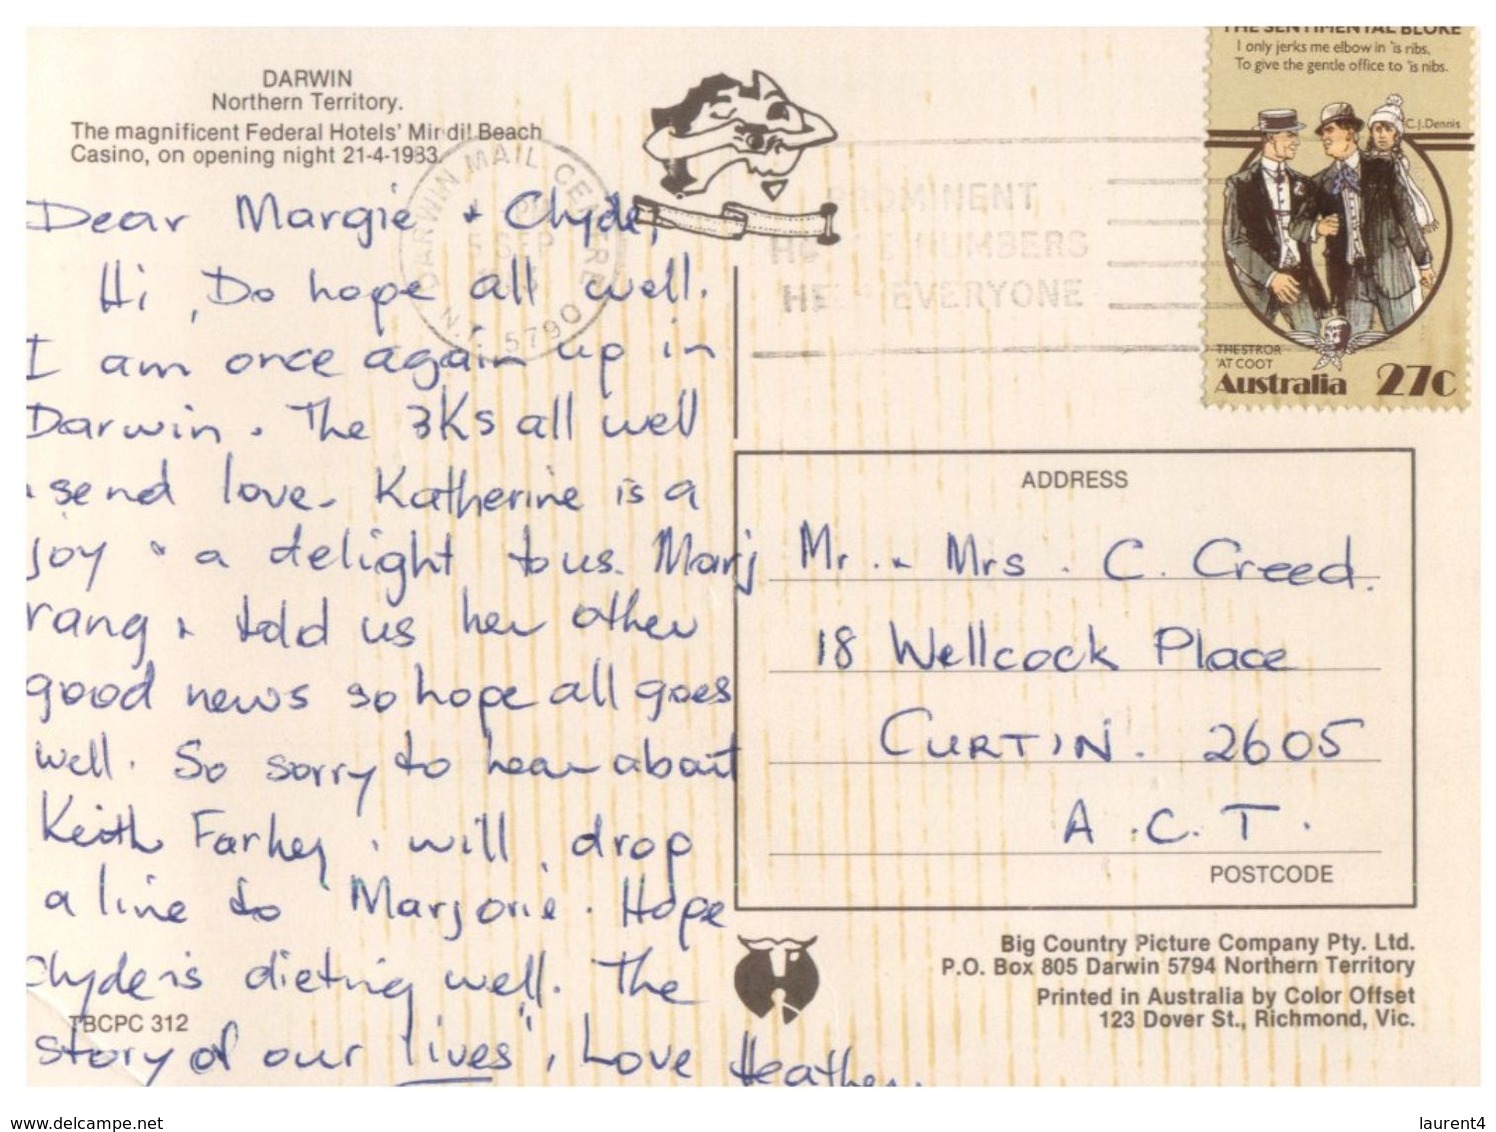 DARWIN
Northern Territory.
The magnificent Federal Hotels' Mindil Beach
Casino, on opening night 21-4-1983.
Dear Margie + Clyde,
Hi, Do hope all well.
I am once again up in
Darwin. The 3Ks all well
send love. Katherine is a
joy + a delight to us. Marj
rang + told us her other
good news so hope all goes
well. So sorry to hear about
Keith Farhey. will drop
a line to Marjorie. Hope
Clyde is dieting well. The
story of our "lives", Love Heather.
TBCPC 312
DARWIN MAIL CENTRE
5 SEP
N.T. 5790
PROMINENT
NUMBERS
HELP EVERYONE
THE SENTIMENTAL BLOKE
I only jerks me elbow in 'is ribs,
To give the gentle office to 'is nibs.
C.J.Dennis
THE STROR
'AT COOT
Australia 27c
ADDRESS
Mr. + Mrs. C. Creed.
18 Wellcock Place
CURTIN. 2605
A.C.T.
POSTCODE
Big Country Picture Company Pty. Ltd.
P.O. Box 805 Darwin 5794 Northern Territory
Printed in Australia by Color Offset
123 Dover St., Richmond, Vic.
www.delcampe.net
laurent4